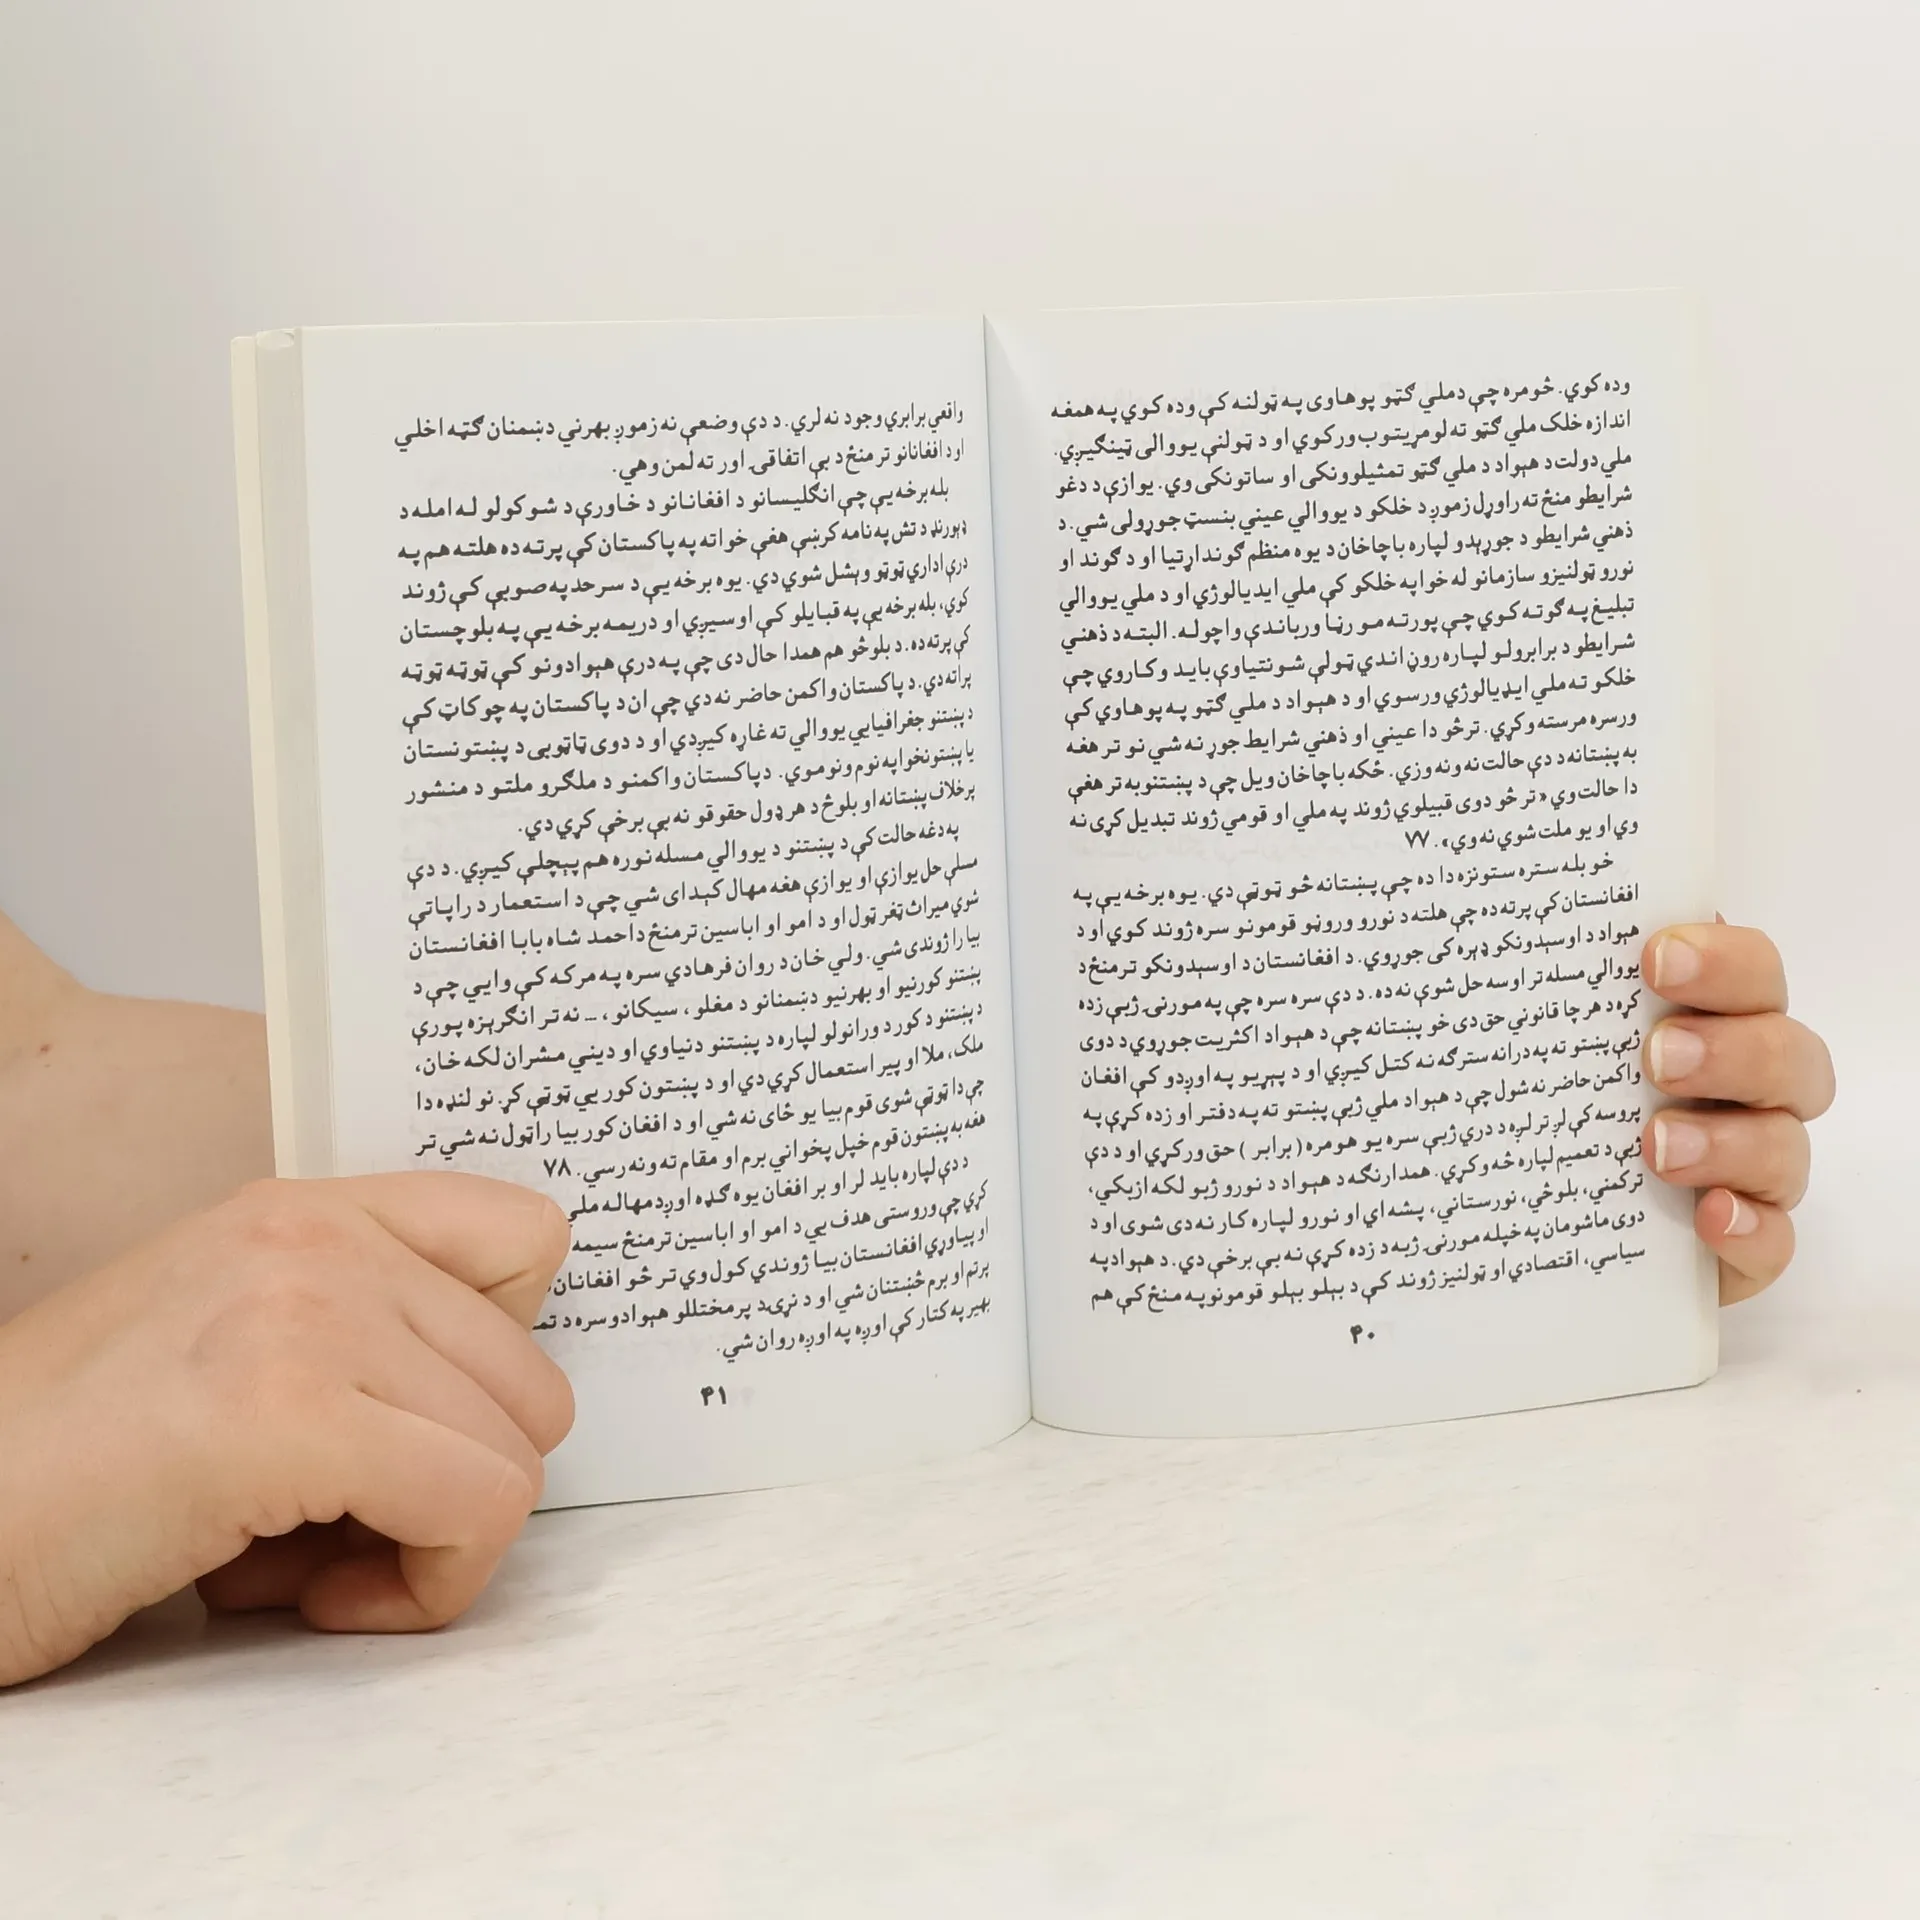 وده کوي. څومره چې دملي ګټو پوهاوی په ټولنه کې وده کوي په همغه
اندازه خلک ملي ګټو ته لومړیتوب ورکوي او د ټولنې یووالی ټینګیږي.
ملي دولت د هېواد د ملي ګټو تمثیلوونکی او ساتونکی وي. یوازې د دغو
شرایطو منځ ته راوړل زموږ د خلکو د یووالي عیني بنسټ جوړولی شي. د
ذهني شرایطو د جوړېدو لپاره باچاخان د یوه منظم ګوند اړتیا او د ګوند او
نورو ټولنیزو سازمانو له خوا په خلکو کې ملي ایدیالوژي او د ملي یووالي
تبلیغ په ګوته کوي چې پورته مو رڼا ورباندې واچوله. البته د ذهني
شرایطو د برابرولو لپاره روڼ اندي ټولې شونتیاوې باید وکاروي چې
خلکو ته ملي ایډیالوژي ورسوي او د هېواد د ملي ګټو په پوهاوي کې
ورسره مرسته وکړي. ترڅو دا عیني او ذهني شرایط جوړ نه شي نو تر هغه
به پښتانه د دې حالت نه ونه وزي. ځکه باچاخان ویل چې د پښتنو به تر هغې
دا حالت وي «تر څو دوی قبیلوي ژوند په ملي او قومي ژوند تبدیل کړی نه
وي او یو ملت شوي نه وي». ۷۷
خو بله ستره ستونزه دا ده چې پښتانه څو ټوټې دي. یوه برخه یې په
افغانستان کې پرته ده چې هلته د نورو وروڼو قومونو سره ژوند کوي او د
هېواد د اوسېدونکو ډېره کی جوړوي. د افغانستان د اوسېدونکو ترمنځ د
یووالي مسله تر اوسه حل شوې نه ده. د دې سره سره چې په مورنۍ ژبې زده
کړه د هر چا قانوني حق دی خو پښتانه چې د هېواد اکثریت جوړوي د دوی
ژبې پښتو ته په درانه سترګه نه کتل کیږي او د پېړیو په اوږدو کې افغان
واکمن حاضر نه شول چې د هېواد ملي ژبې پښتو ته په دفتر او زده کړې په
پروسه کې لږ تر لږه د دري ژبې سره یو هومره (برابر) حق ورکړي او د دې
ژبې د تعمیم لپاره څه وکړي. همدارنګه د هېواد د نورو ژبو لکه ازبکي،
ترکمني، بلوڅي، نورستاني، پشه ای او نورو لپاره کار نه دی شوی او د
دوی ماشومان په خپله مورنۍ ژبه د زده کړې نه بې برخې دي. د هېواد په
سیاسي، اقتصادي او ټولنیز ژوند کې د بېلو بېلو قومونو په منځ کې هم
۴۰
واقعي برابري وجود نه لري. د دې وضعې نه زموږ بهرني دښمنان ګټه اخلي
او د افغانانو ترمنځ د بې اتفاقۍ اور ته لمن وهي.
بله برخه یې چې انګلیسانو د افغانانو د خاورې د شوکولو له امله د
ډېورنډ د تش په نامه کرښې هغې خوا ته په پاکستان کې پرته ده هلته هم په
درې اداري ټوټو وېشل شوي دي. یوه برخه یې د سرحد په صوبې کې ژوند
کوي، بله برخه یې په قبایلو کې اوسیږي او دریمه برخه یې په بلوچستان
کې پرته ده. د بلوڅو هم همدا حال دی چې په درې هېوادونو کې ټوټه ټوټه
پراته دي. د پاکستان واکمن حاضر نه دي چې ان د پاکستان په چوکاټ کې
د پښتنو جغرافیایي یووالي ته غاړه کیږدي او د دوی ټاټوبی د پښتونستان
یا پښتونخوا په نوم ونوموي. دپاکستان واکمنو د ملګرو ملتو د منشور
پرخلاف پښتانه او بلوڅ د هر ډول حقوقو نه بې برخې کړي دي.
په دغه حالت کې د پښتنو د یووالي مسله نوره هم پېچلې کیږي. د دې
مسلې حل یوازې او یوازې هغه مهال کېدای شي چې د استعمار د راپاتې
شوي میراث ټغر ټول او د امو او اباسین ترمنځ داحمد شاه بابا افغانستان
بیا را ژوندی شي. ولي خان د روان فرهادي سره په مرکه کې وایي چې د
پښتنو کورنیو او بهرنیو دښمنانو د مغلو، سیکانو، ... نه تر انګرېزه پورې
د پښتنو د کور د ورانولو لپاره د پښتنو دنیاوي او دیني مشران لکه خان،
ملک، ملا او پیر استعمال کړي دي او د پښتون کور یې ټوټې کړ. نو لنډه دا
چې دا ټوټې شوی قوم بیا یو ځای نه شي او د افغان کور بیا را ټول نه شي تر
هغه به پښتون قوم خپل پخواني برم او مقام ته ونه رسي. ۷۸
د دې لپاره باید لر او بر افغان یوه ګډه اوږدمهاله ملي
کړي چې وروستی هدف یې د امو او اباسین ترمنځ سیمه
او پیاوړي افغانستان بیا ژوندي کول وي تر څو افغانان
پرتم او برم څښتنان شي او د نړۍ د پرمختللو هېوادو سره د تمـ
بهیر په کتار کې اوږه په اوږه روان شي.
۴۱